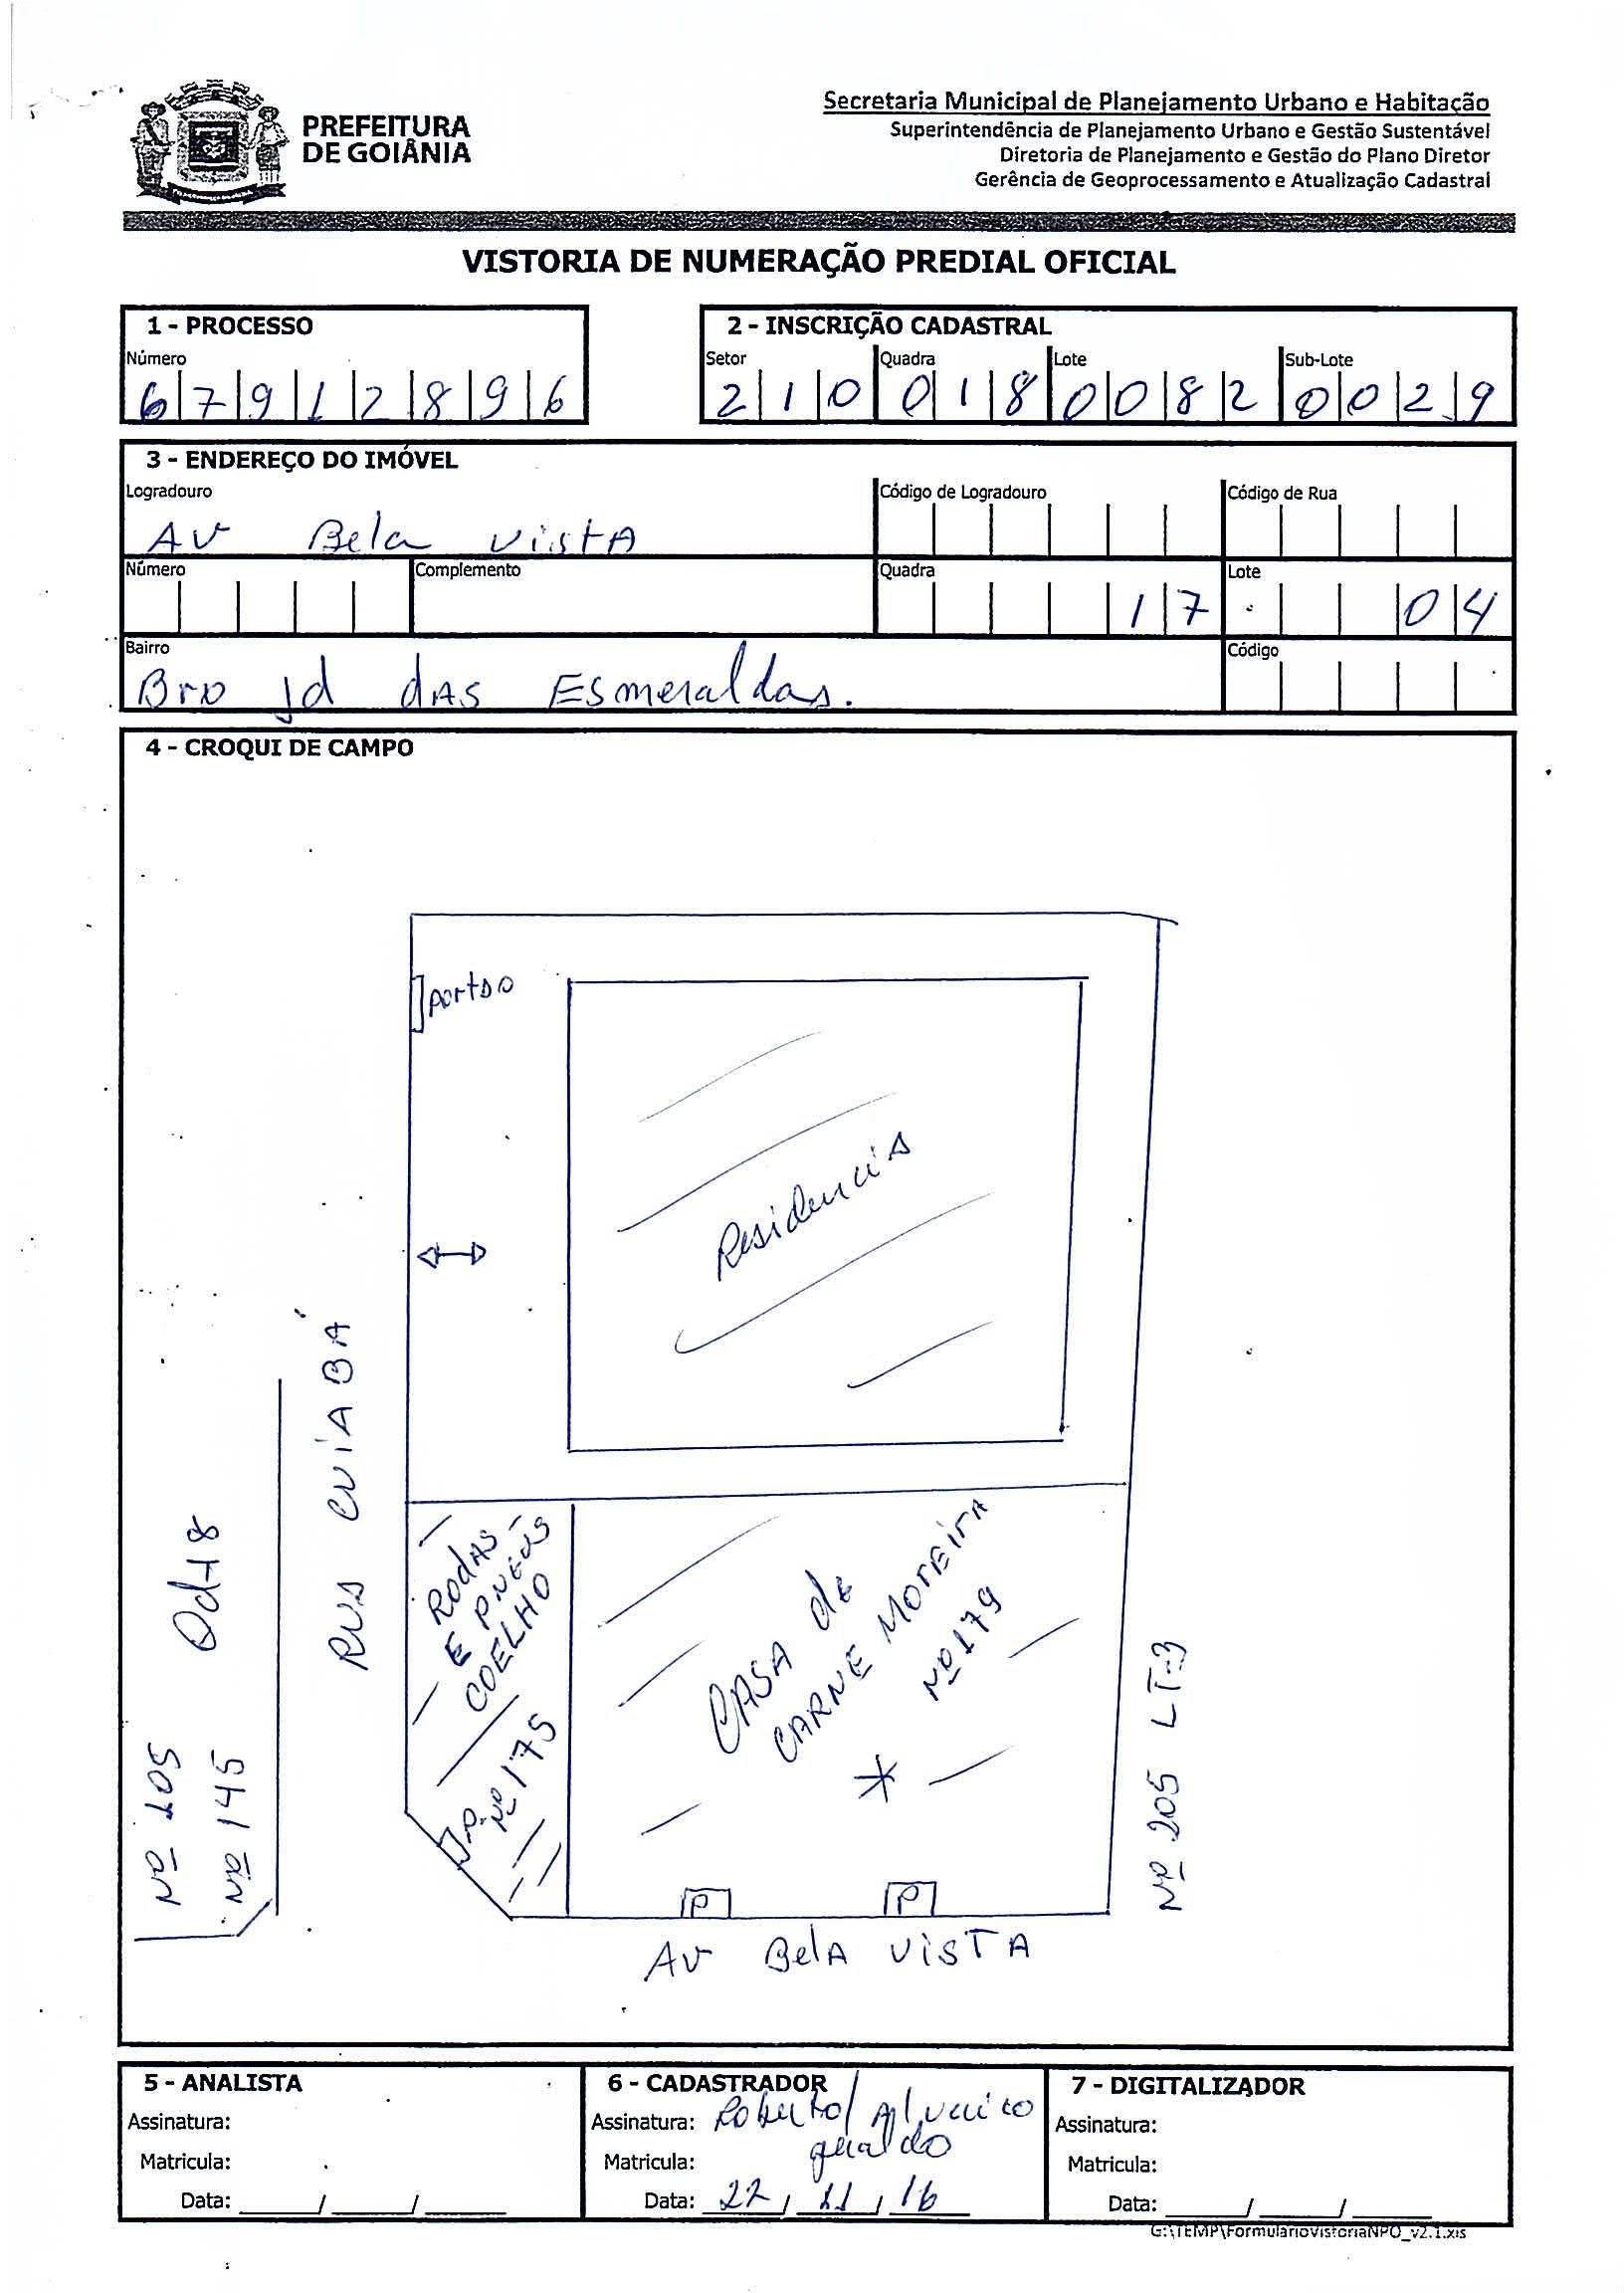 PREFEITURA
DE GOIÂNIA
Secretaria Municipal de Planejamento Urbano e Habitação
Superintendência de Planejamento Urbano e Gestão Sustentável
Diretoria de Planejamento e Gestão do Plano Diretor
Gerência de Geoprocessamento e Atualização Cadastral
VISTORIA DE NUMERAÇÃO PREDIAL OFICIAL
1 - PROCESSO
Número
6 7 9 1 2 8 9 6
2 - INSCRIÇÃO CADASTRAL
Setor Quadra Lote Sub-Lote
2 1 0 0 1 8 0 0 8 2 0 0 2 9
3 - ENDEREÇO DO IMÓVEL
Logradouro Código de Logradouro Código de Rua
AV Bela vistA
Número Complemento Quadra Lote
1 7 0 4
Bairro Código
Bro Jd dAS ESmeraldas.
4 - CROQUI DE CAMPO
portão
Residencia
RUA CUIABÁ
Qd 18
Nº 105
Nº 145
RodAS
E PNEUS
COELHO
Nº 175
CASA de
CARNE MOREIRA
Nº 179
Nº 205 LT-3
P P
AV BelA VISTA
5 - ANALISTA
Assinatura:
Matricula:
Data: / /
6 - CADASTRADOR
Assinatura: Roberto
Matricula: geraldo
Data: 22 / 11 / 16
7 - DIGITALIZADOR
Assinatura:
Matricula:
Data: / /
G:\TEMP\FormularioVistoriaNPO_v2.1.xls